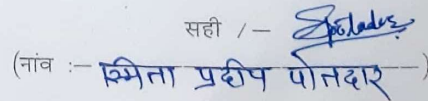 सही /-
(नांव :- स्मिता प्रदीप पोतदार )